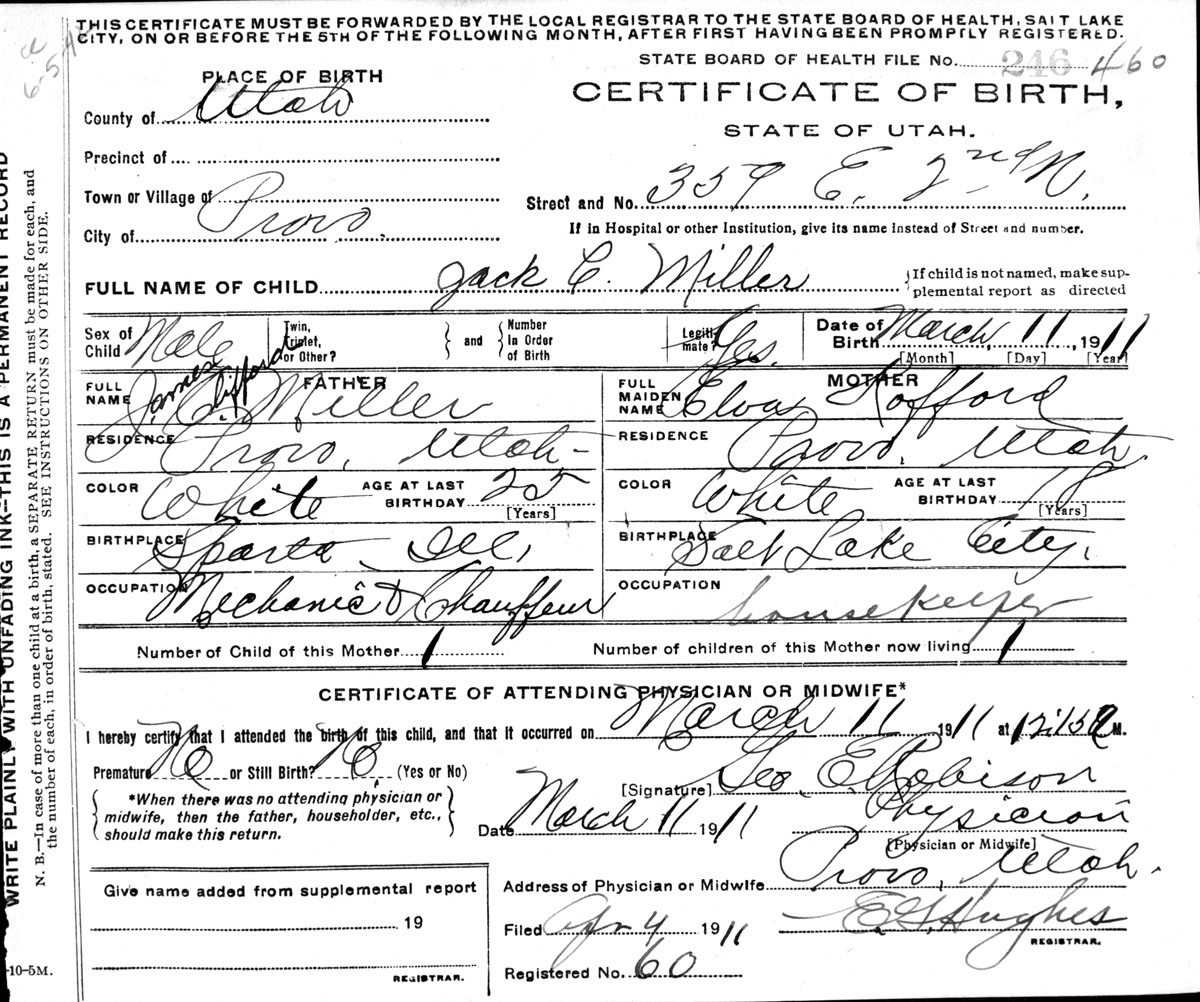 THIS CERTIFICATE MUST BE FORWARDED BY THE LOCAL REGISTRAR TO THE STATE BOARD OF HEALTH, SALT LAKE
CITY, ON OR BEFORE THE 5TH OF THE FOLLOWING MONTH, AFTER FIRST HAVING BEEN PROMPTLY REGISTERED.
STATE BOARD OF HEALTH FILE No. 246 460
PLACE OF BIRTH
CERTIFICATE OF BIRTH,
STATE OF UTAH.
County of Utah
Precinct of
Town or Village of
City of Provo
Street and No. 359 E. 2nd N.
If in Hospital or other Institution, give its name instead of Street and number.
FULL NAME OF CHILD Jack C. Miller
If child is not named, make sup-
plemental report as directed
Sex of Child Male Twin, Triplet, or Other? and Number In Order of Birth Legiti- mate? Yes. Date of Birth March 11, 1911
[Month] [Day] [Year]
FATHER
FULL NAME J. C. Miller
James Clifford
RESIDENCE Provo, Utah
COLOR White AGE AT LAST BIRTHDAY 25 [Years]
BIRTHPLACE Sparta Ill.
OCCUPATION Mechanic & Chauffeur
MOTHER
FULL MAIDEN NAME Elva Kofford
RESIDENCE Provo, Utah
COLOR White AGE AT LAST BIRTHDAY 18 [Years]
BIRTHPLACE Salt Lake City.
OCCUPATION housekeeper
Number of Child of this Mother 1 Number of children of this Mother now living 1
CERTIFICATE OF ATTENDING PHYSICIAN OR MIDWIFE*
I hereby certify that I attended the birth of this child, and that it occurred on March 11 1911 at M.
Premature No or Still Birth? No (Yes or No)
[Signature] Geo. E. Robison
*When there was no attending physician or
midwife, then the father, householder, etc.,
should make this return.
Date March 11 1911
Physician
[Physician or Midwife]
Address of Physician or Midwife Provo, Utah.
Give name added from supplemental report
19
REGISTRAR.
Filed Apr 4 1911 E. G. Hughes
REGISTRAR.
Registered No. 60
WRITE PLAINLY WITH UNFADING INK—THIS IS A PERMANENT RECORD
N. B.—In case of more than one child at a birth, a SEPARATE RETURN must be made for each, and
the number of each, in order of birth, stated. SEE INSTRUCTIONS ON OTHER SIDE.
-10-5M.